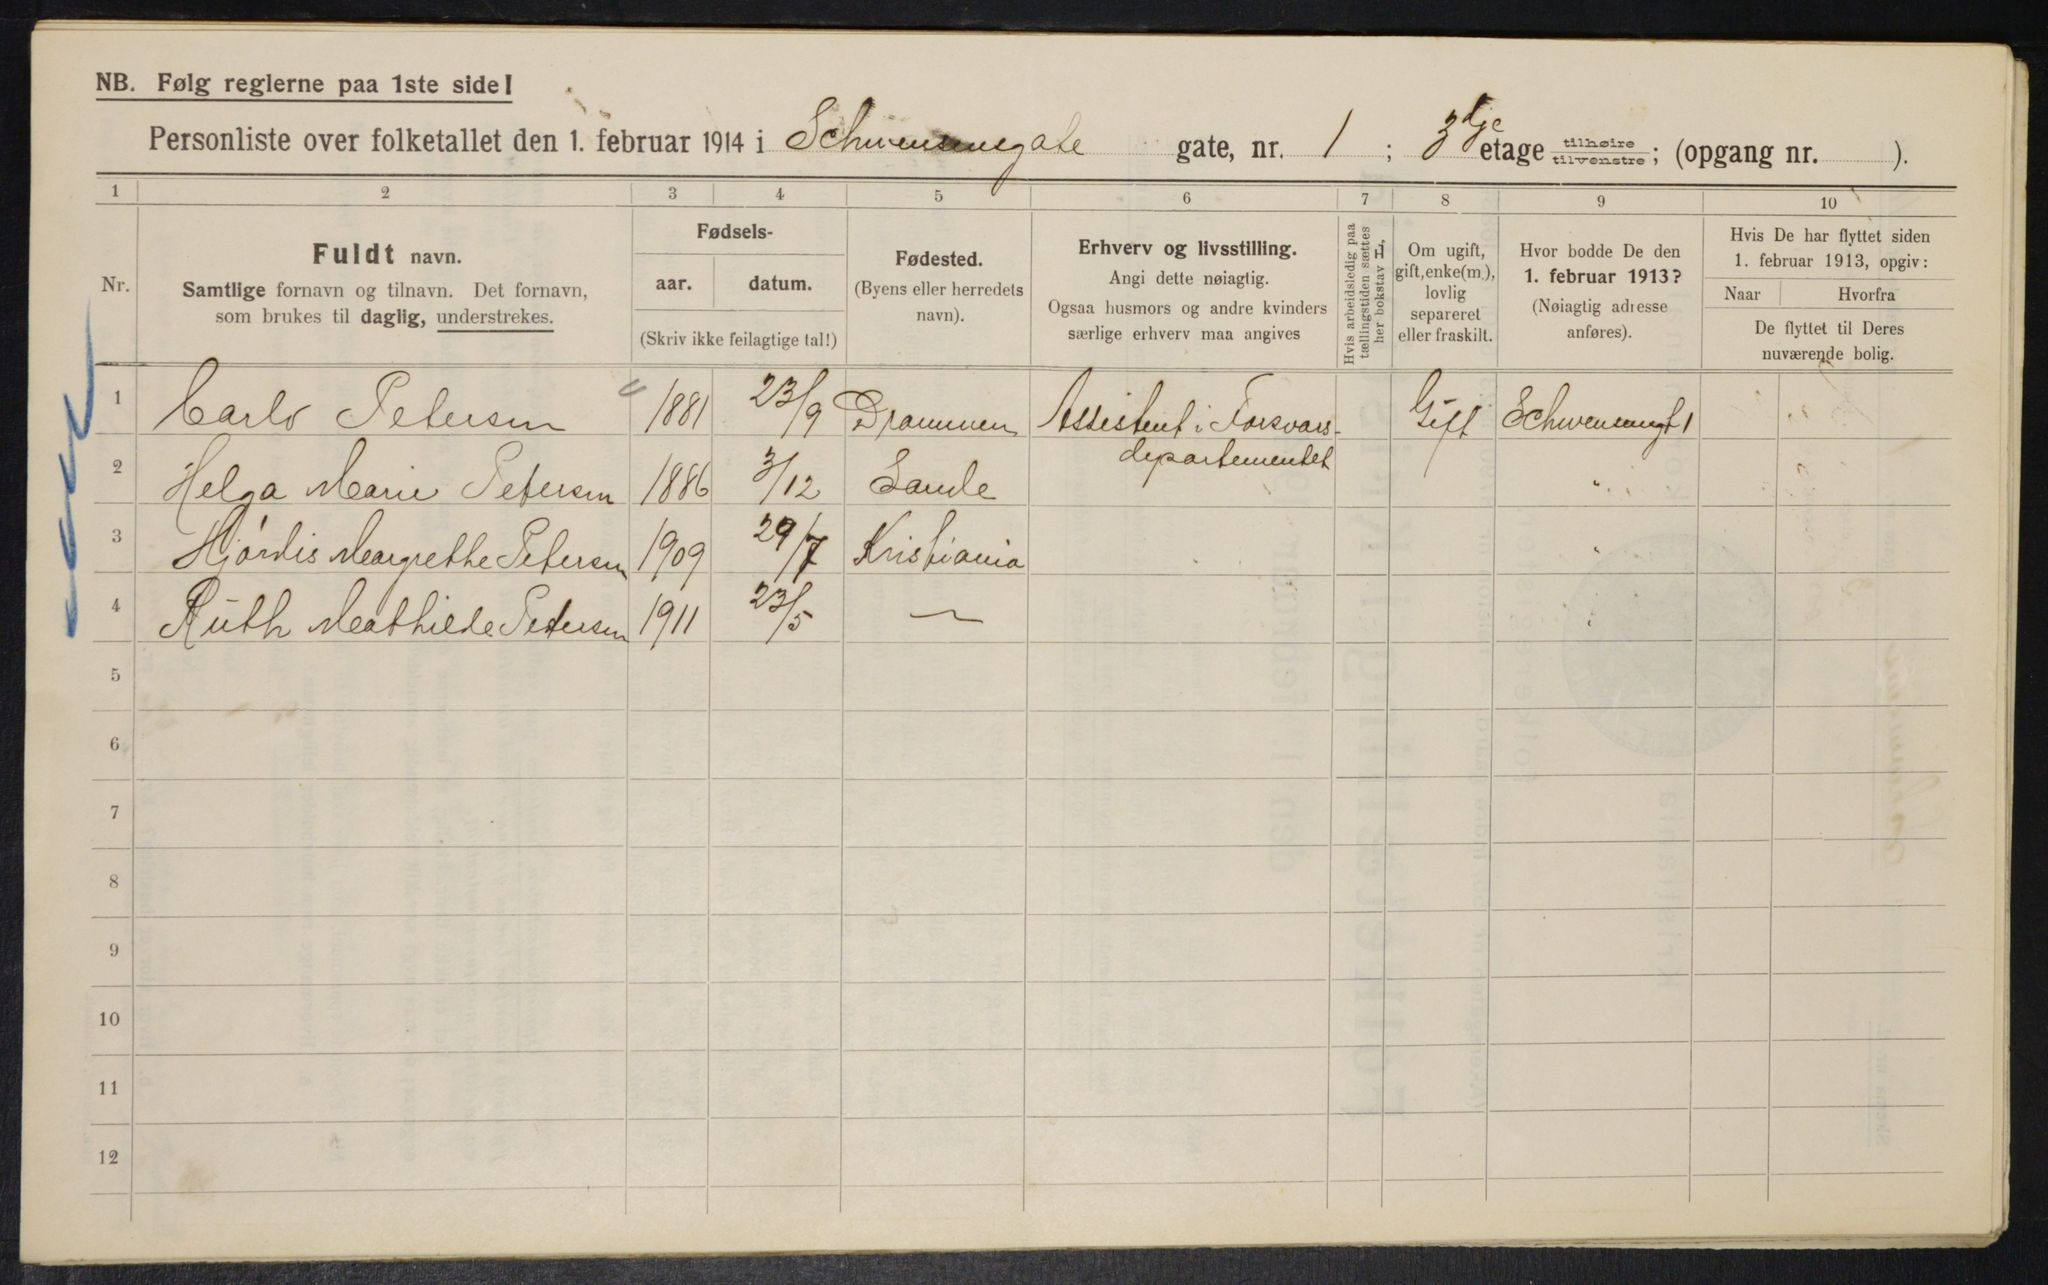 NB. Følg reglerne paa 1ste side!
Personliste over folketallet den 1. februar 1914 i Schwensensgate gate, nr. 1 ; 3dje etage tilhøire tilvenstre ; (opgang nr. ).
1 2 3 4 5 6 7 8 9 10
Nr.
Fuldt navn.
Samtlige fornavn og tilnavn. Det fornavn,
som brukes til daglig, understrekes.
Fødsels-
aar. datum.
(Skriv ikke feilagtige tal!)
Fødested.
(Byens eller herredets
navn).
Erhverv og livsstilling.
Angi dette nøiagtig.
Ogsaa husmors og andre kvinders
særlige erhverv maa angives
Hvis arbeidsledig paa
tællingstiden sættes
her bokstav L,
Om ugift,
gift, enke(m.),
lovlig
separeret
eller fraskilt.
Hvor bodde De den
1. februar 1913?
(Nøiagtig adresse
anføres).
Hvis De har flyttet siden
1. februar 1913, opgiv:
Naar Hvorfra
De flyttet til Deres
nuværende bolig.
1 Carlo Petersen 1881 23/9 Drammen Assistent i Forsvars- Gift Schwensengt 1
departementet
2 Helga Marie Petersen 1886 3/12 Sande "
3 Hjördis Margrethe Petersen 1909 29/7 Kristiania "
4 Ruth Mathilde Petersen 1911 23/5 — "
5
6
7
8
9
10
11
12